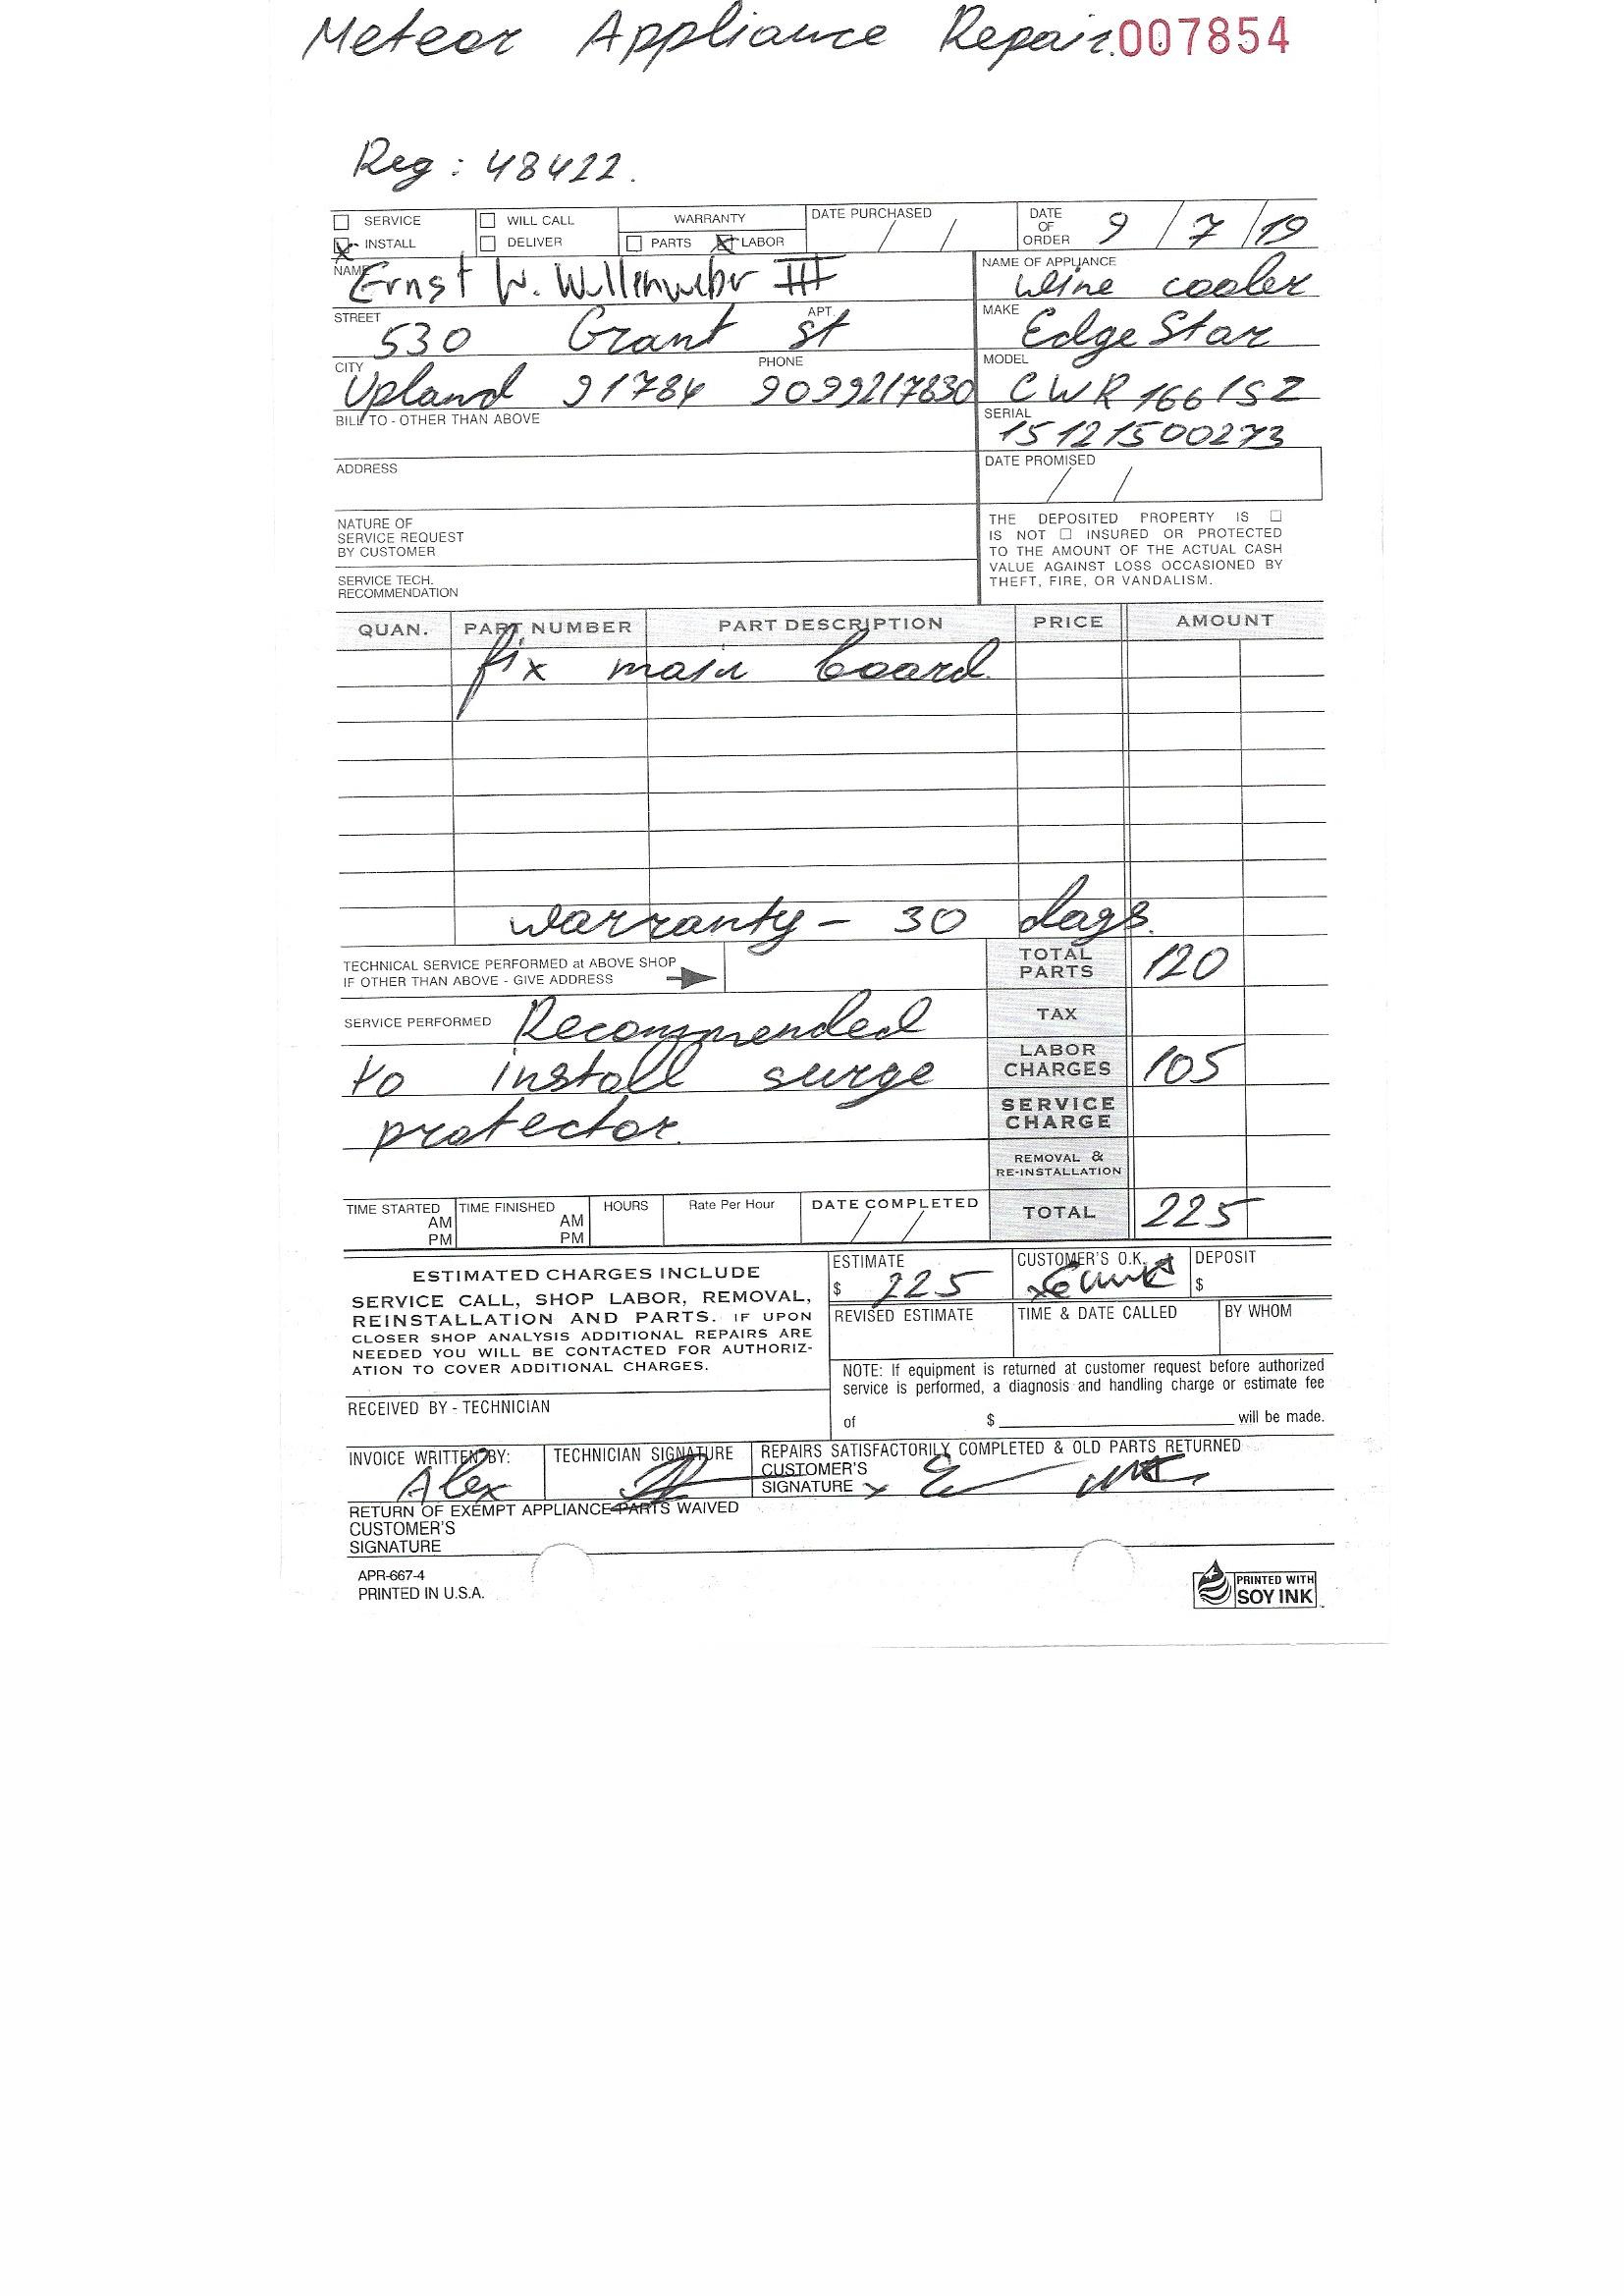 Meteor Appliance Repair. 007854
Reg: 48422.
SERVICE WILL CALL WARRANTY DATE PURCHASED / / DATE OF ORDER 9/7/19
INSTALL DELIVER PARTS LABOR
NAME Ernst W. Wullenweber III
NAME OF APPLIANCE wine cooler
STREET 530 Grant APT. st
MAKE EdgeStar
CITY Upland 91784 PHONE 9099217830
MODEL CWR1661SZ
BILL TO - OTHER THAN ABOVE
SERIAL 15121500273
ADDRESS
DATE PROMISED / /
NATURE OF
SERVICE REQUEST
BY CUSTOMER
SERVICE TECH.
RECOMMENDATION
THE DEPOSITED PROPERTY IS ☐
IS NOT ☐ INSURED OR PROTECTED
TO THE AMOUNT OF THE ACTUAL CASH
VALUE AGAINST LOSS OCCASIONED BY
THEFT, FIRE, OR VANDALISM.
QUAN. PART NUMBER PART DESCRIPTION PRICE AMOUNT
fix main board.
warranty - 30 days.
TECHNICAL SERVICE PERFORMED at ABOVE SHOP
IF OTHER THAN ABOVE - GIVE ADDRESS
TOTAL PARTS 120
SERVICE PERFORMED Recommended
TAX
to install surge
LABOR CHARGES 105
protector.
SERVICE CHARGE
REMOVAL & RE-INSTALLATION
TIME STARTED AM PM TIME FINISHED AM PM HOURS Rate Per Hour DATE COMPLETED / / TOTAL 225
ESTIMATED CHARGES INCLUDE
SERVICE CALL, SHOP LABOR, REMOVAL,
REINSTALLATION AND PARTS. IF UPON
CLOSER SHOP ANALYSIS ADDITIONAL REPAIRS ARE
NEEDED YOU WILL BE CONTACTED FOR AUTHORIZ-
ATION TO COVER ADDITIONAL CHARGES.
ESTIMATE $ 225 CUSTOMER'S O.K. DEPOSIT $
REVISED ESTIMATE TIME & DATE CALLED BY WHOM
NOTE: If equipment is returned at customer request before authorized
service is performed, a diagnosis and handling charge or estimate fee
of $ will be made.
RECEIVED BY - TECHNICIAN
INVOICE WRITTEN BY: Alex TECHNICIAN SIGNATURE REPAIRS SATISFACTORILY COMPLETED & OLD PARTS RETURNED
CUSTOMER'S
SIGNATURE x
RETURN OF EXEMPT APPLIANCE PARTS WAIVED
CUSTOMER'S
SIGNATURE
APR-667-4
PRINTED IN U.S.A.
PRINTED WITH
SOY INK